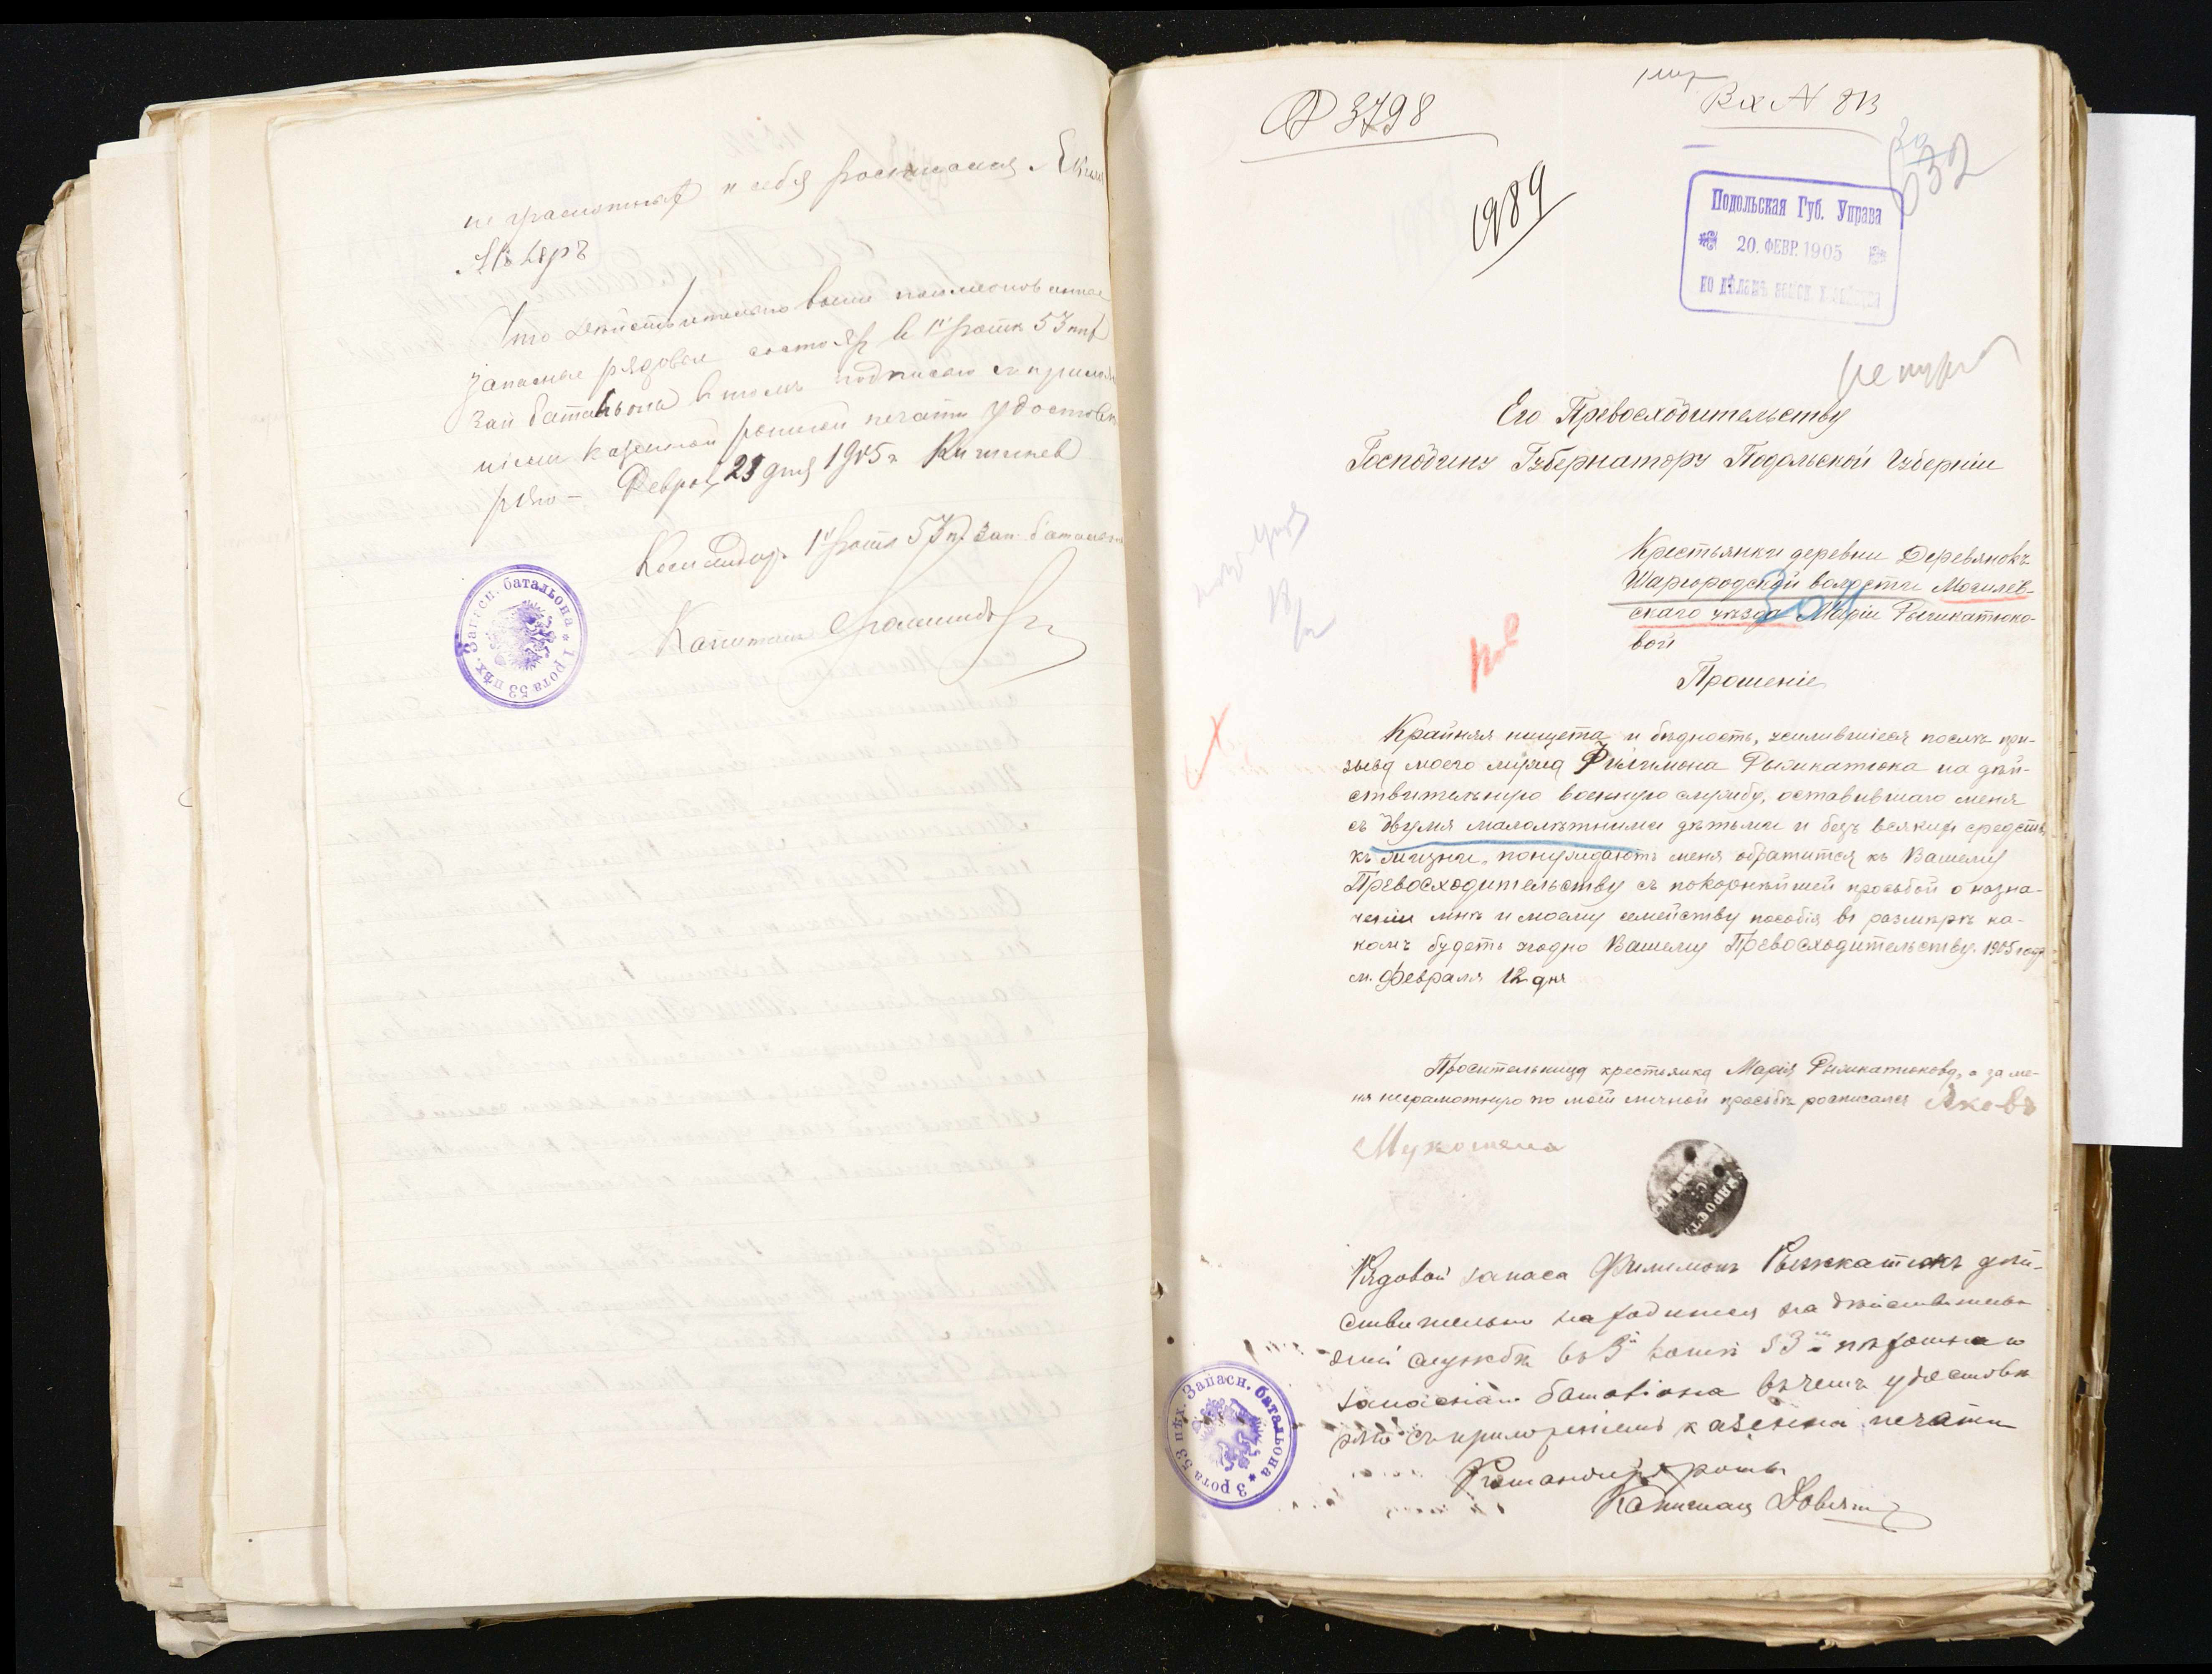 не грамотнаго и себя росписался Яким
Аквяръ
Что действительно выше поименованные
запасные рядовые состоятъ в 1й роте 53 пех
Зап батальона в томъ подписью съ прилож
нiемъ казенной ротной печати удостове
ряю – Февраля 21 дня 1905 г Кишинев
Командир 1й роты 53 пех Зап. батальона
Капитан
1 рота 53 пѣх. Запасн. батальона *
Вх N 813
Ф 3798
632
1989
Подольская Губ. Управа
20. ФЕВР. 1905
по дѣламъ
Его Превосходительству
Господину Губернатору Подольской Губерніи
Крестьянки деревни Деревянокъ
Шаргородской волости Могилев-
скаго уѣзда Маріи Рыжикатюко-
вой
Прошеніе
Крайняя нищета и бѣдность, усилившіеся послѣ при-
зыва моего мужа Филимона Рыжикатюка на дѣй-
ствительную военную службу, оставившаго меня
съ двумя малолѣтними дѣтьми и безъ всякихъ средствъ
къ жизни, понуждаютъ меня обратится къ Вашему
Превосходительству съ покорнѣйшей просьбой о назна-
ченіи мнѣ и моему семейству пособія въ размѣрѣ ка-
комъ будетъ угодно Вашему Превосходительству. 1905 года
м. Февраля 12 дня
Просительница крестьянка Марія Рыжикатюкова, а за ме-
ня неграмотную по моей личной просьбѣ росписался Яковъ
Рядовой запаса Филимонъ Рыжкатюкъ дѣй-
ствительно находится на дѣйствитель
ной службѣ въ 3й ротѣ 53го пѣхотнаго
запаснаго баталіона въ чемъ удостовѣ
ряю съ приложеніемъ казенной печати
Командиръ роты
Капитанъ
3 рота 53 пѣх. Запасн. батальона *